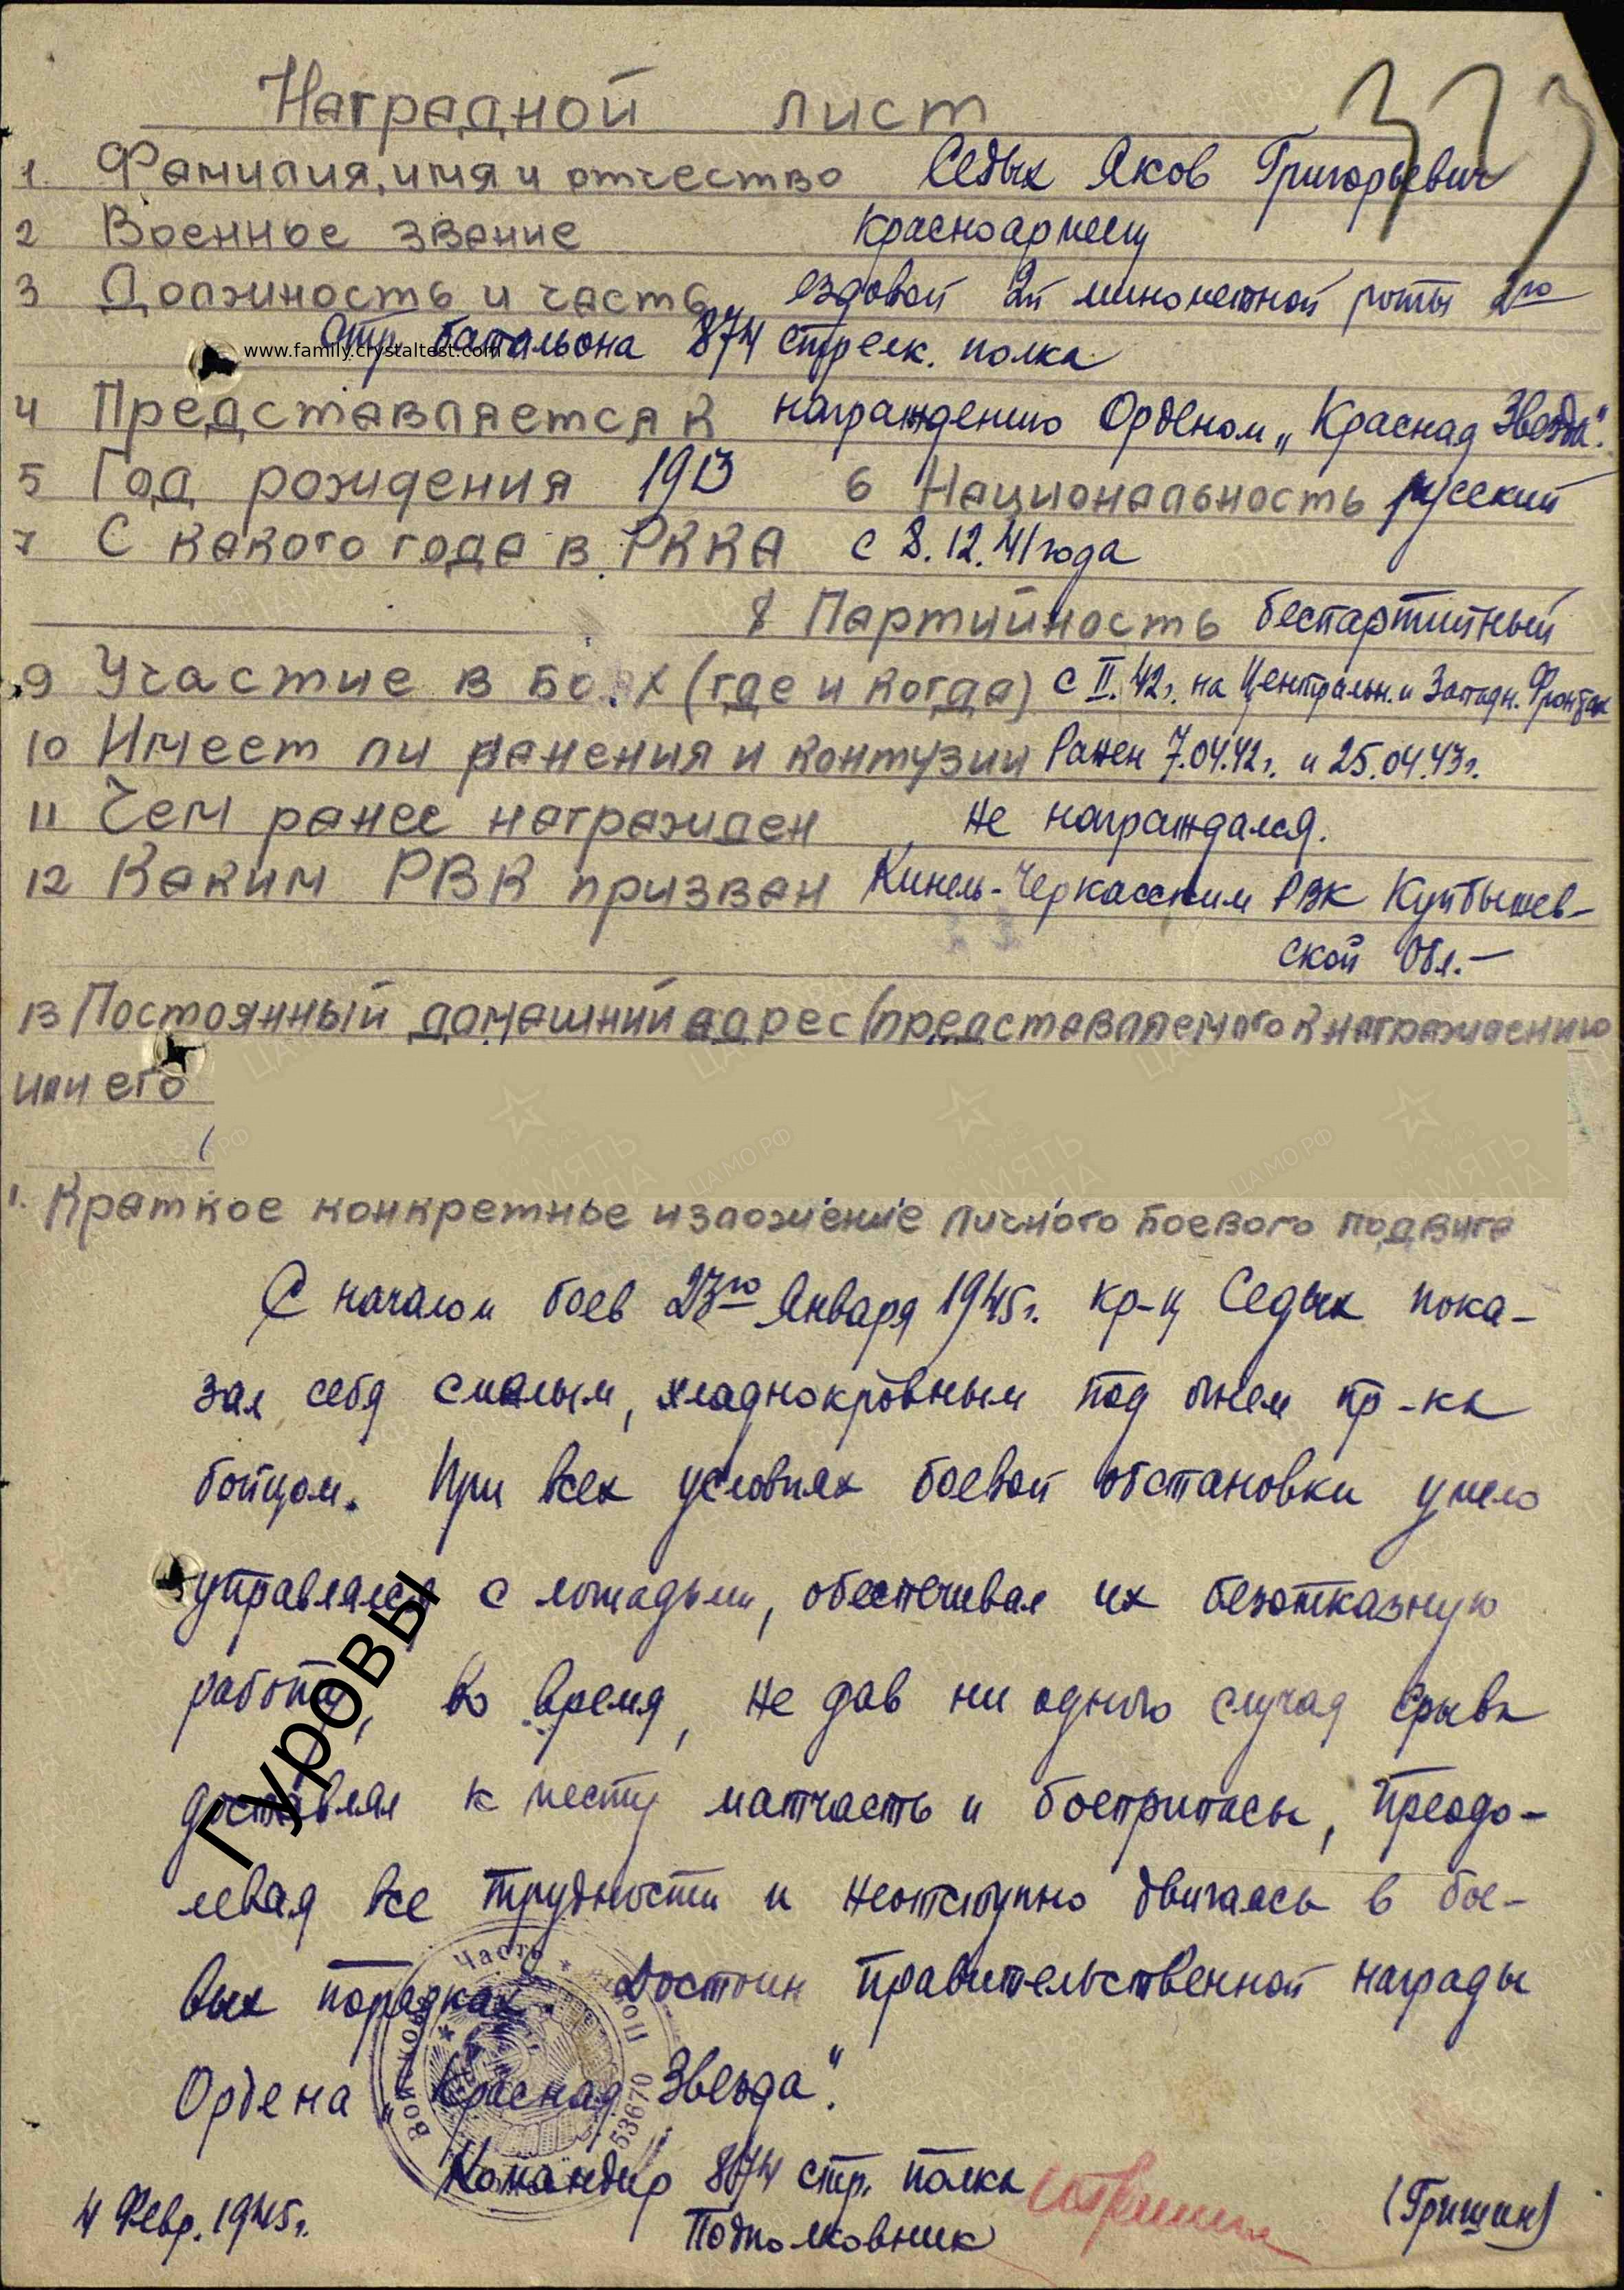 323
Наградной лист
1. Фамилия, имя и отчество Седых Яков Григорьевич
2 Военное звание красноармеец
3 Должность и часть ездовой 2й минометной роты 2го
стр. батальона 874 стрелк. полка
www.family.crystaltest.com
4 Представляется к награждению Орденом „Красная Звезда".
5 Год рождения 1913 6 Национальность русский
7 С какого года в РККА с 8.12.41 года
8 Партийность беспартийный
9 Участие в Боях (где и когда) с II.42г. на Центральн. и Западн. Фронтах
10 Имеет ли ранения и контузии Ранен 7.04.42г. и 25.04.43г.
11 Чем ранее награжден не награждался.
12 Каким РВК призван Кинель-Черкасским РВК Куйбышев-
ской Обл.-
13 Постоянный домашний адрес (представляемого к награждению
или его
1. Краткое конкретные изложение личного боевого подвига
С началом боев 23го Января 1945г. кр-ц Седых пока-
зал себя смелым, хладнокровным под огнем пр-ка
бойцом. При всех условиях боевой обстановки умело
управлялся с лошадьми, обеспечивал их безотказную
работу, во время, не дав ни одного случая срыва
доставлял к месту матчасть и боеприпасы, преодо-
левая все трудности и неотступно двигаясь в бое-
вых порядках. Достоин правительственной награды
Ордена „Красная Звезда".
Командир 874 стр. полка
Подполковник (Гришин)
4 Февр. 1945г.
Войсковая Часть Полевая 53670
Гуровы